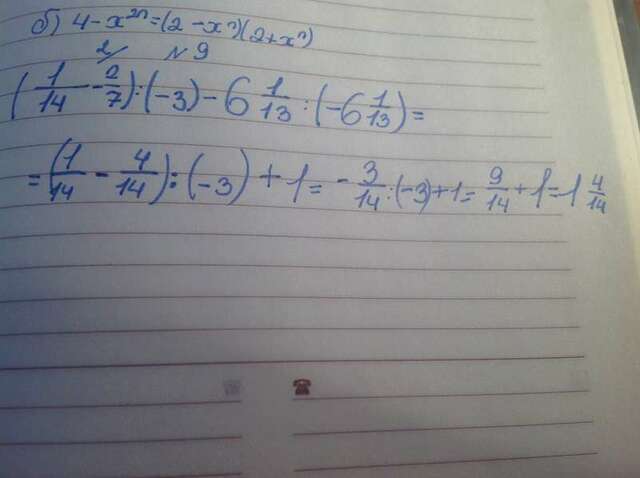 б) 4-x²ⁿ=(2-xⁿ)(2+xⁿ)
2/ №9
(1/14 - 2/7):(-3)-6 1/13:(-6 1/13)=
=(1/14 - 4/14):(-3)+1=-3/14:(-3)+1=9/14+1=1 4/14